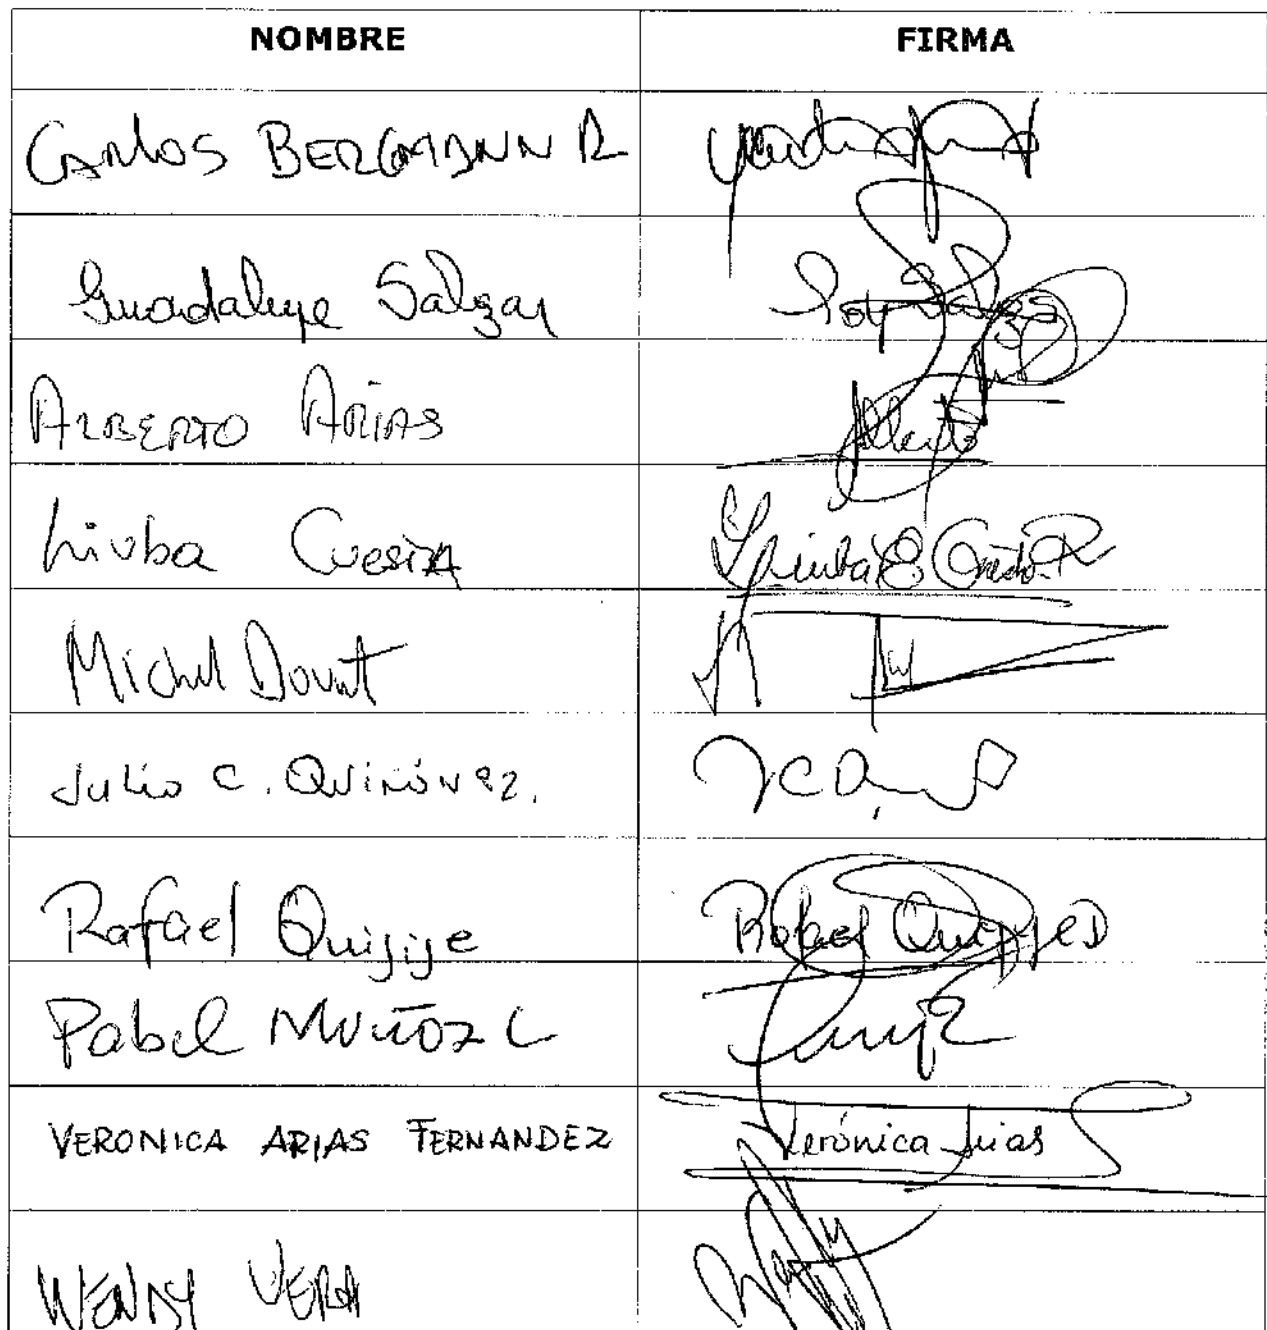 NOMBRE FIRMA
CARLOS BERGMANN R
Guadalupe Salazar
ALBERTO ARIAS Alberto
Liuba Cuesta Liuba E Cuesta R
Michel Doumt
Julio C. Quiñónez.
Rafael Quijije Rafael Quijije D
Pabel Muñoz L
VERONICA ARIAS FERNANDEZ Verónica Arias
WENDY VERA